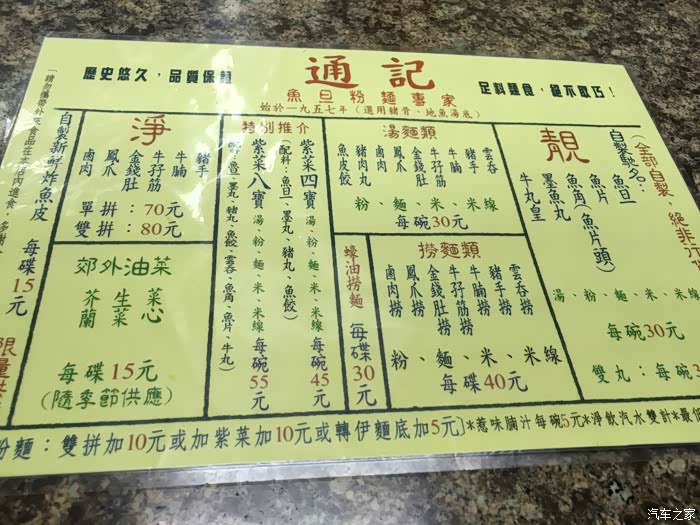 通記
歷史悠久，品質保證
足料麵食，絕不取巧！
魚旦粉麵專家
始於一九五七年（選用豬骨、地魚湯底）
(全部自製，絕非
自製馳名：
魚旦
魚片
魚角（魚片頭）
墨魚丸
牛丸皇
靚
湯、粉、麵、米、米線
每碗30元
雙丸：每碗
湯麵類
雲吞
豬手
牛腩
牛孖筋
金錢肚
鳳爪
鹵肉
豬肉丸
魚皮餃
粉、麵、米、米線
每碗30元
撈麵類
雲吞撈
豬手撈
牛腩撈
牛孖筋撈
金錢肚撈
鳳爪撈
鹵肉撈
粉、麵、米、米線
每碟40元
蠔油撈麵
每碟30元
特別推介
紫菜四寶湯、粉、麵、米、米線 每碗45元
（配料：魚旦、墨丸、豬丸、魚餃）
紫菜八寶湯、粉、麵、米、米線 每碗55元
魚旦、墨丸、豬丸、魚餃、雲吞、魚角、魚片、牛丸）
淨
豬手
牛腩
牛孖筋
金錢肚
鳳爪
鹵肉
單拼：70元
雙拼：80元
郊外油菜
菜心
生菜
芥蘭
每碟15元
(隨季節供應)
自製新鮮炸魚皮
每碟15元
限量
（請勿攜帶外來食品在本店內進食，多謝
粉麵：雙拼加10元或加紫菜加10元或轉伊麵底加5元】*惹味腩汁每碗5元*淨飲汽水雙計*最低
汽车之家